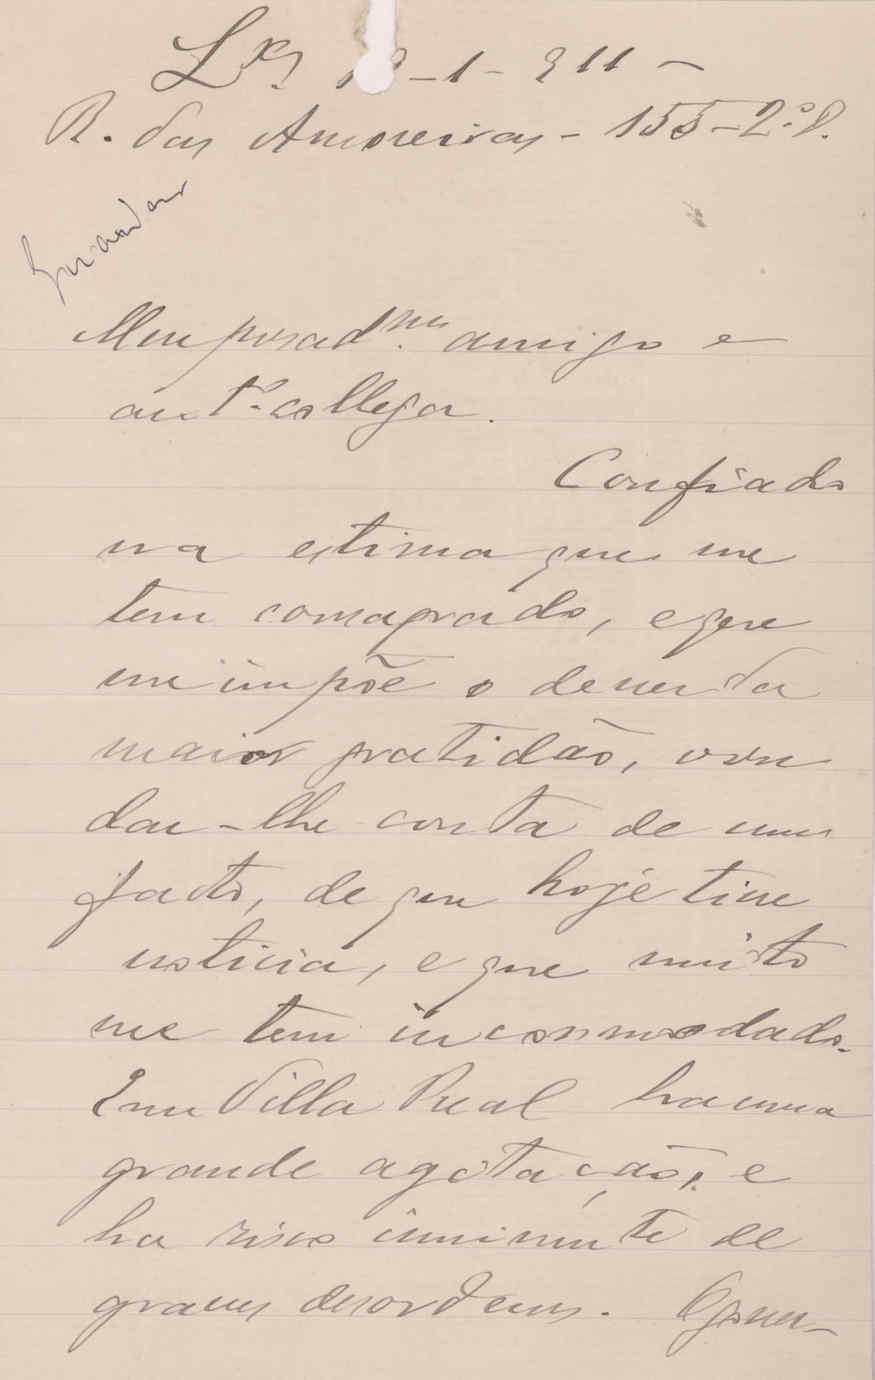 Lxª -1-911-
R. das Amoreiras - 155-2º D.
Guardar
Meu presadmo amigo e
antº collega.
Confiado
na estima que me
tem consagrado, e que
me impõe o dever da
maior gratidão, vou
dar-lhe conta de um
facto, de que hoje tive
noticia, e que muito
me tem incommodado.
Em Villa Real ha uma
grande agitação, e
ha risco imminente de
graves desordens. O gover-